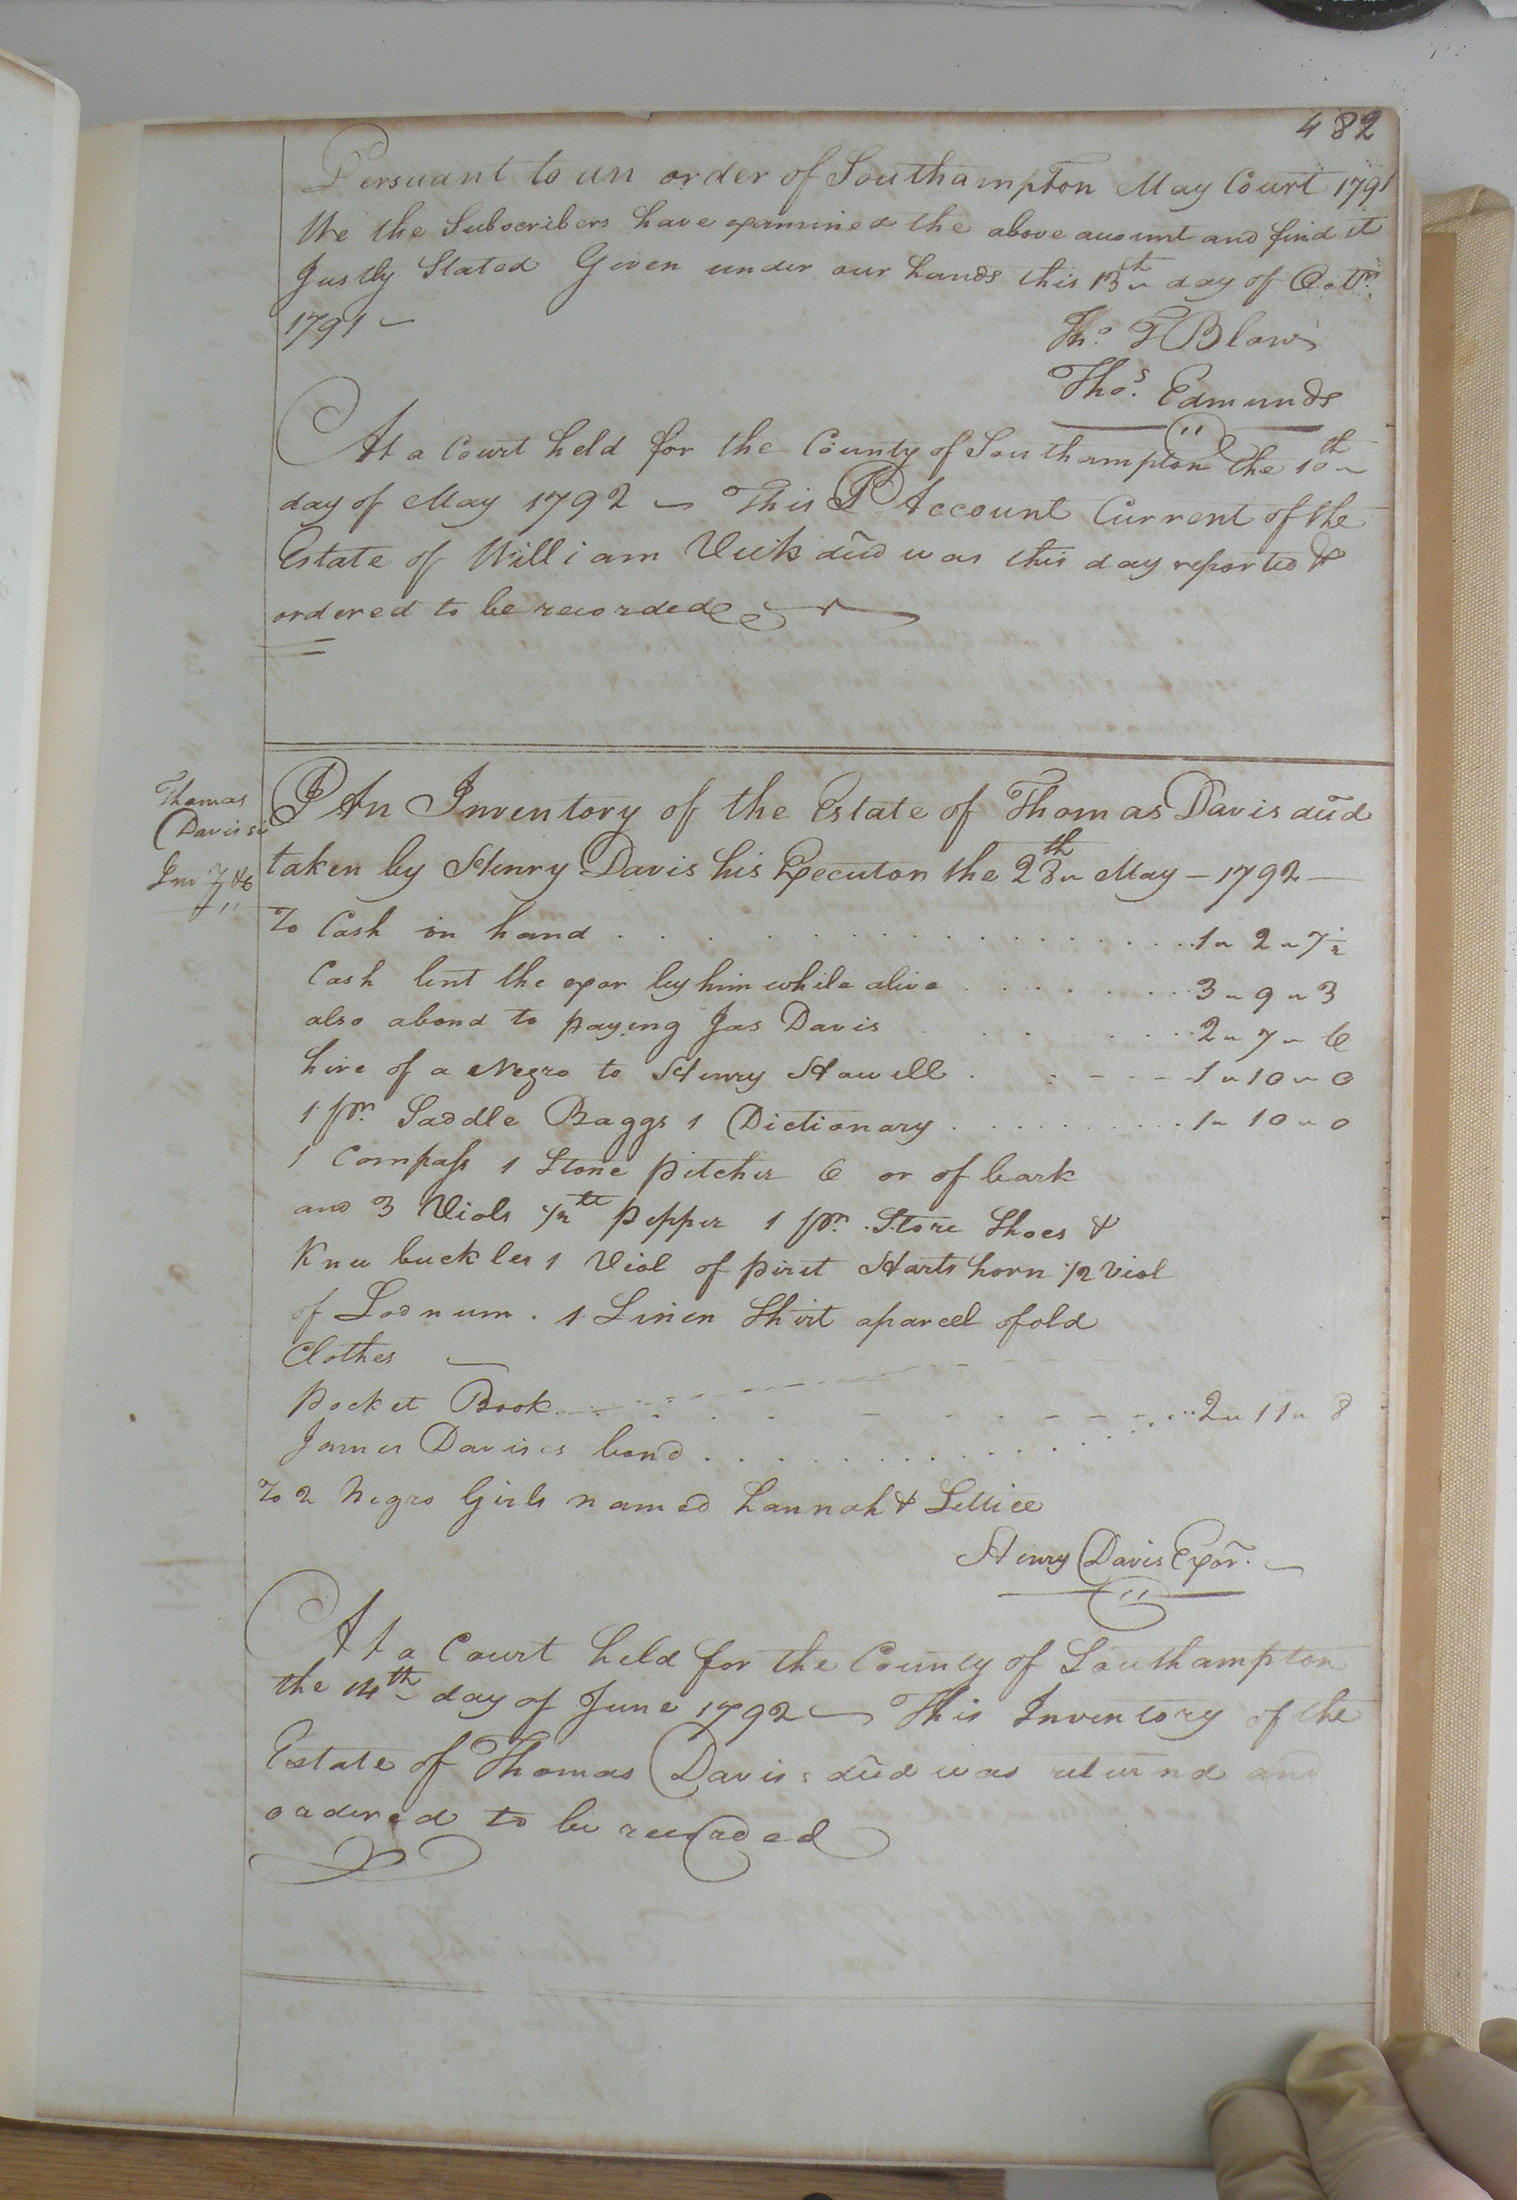 482
Persuant to an order of Southampton May Court 1791
We the Subscribers have examined the above account and find it
Justly Stated Given under our hands this 13th day of Octr.
1791
Tho. F Blow
Thos. Edmunds
At a Court held for the County of Southampton the 10th
day of May 1792 This Account Current of the
Estate of William Vick decd was this day reported &
ordered to be recorded
Thomas
Davis's
An Inventory of the Estate of Thomas Davis decd
taken by Henry Davis his Executor the 28th May - 1792
To Cash in hand 1 " 2 " 7½
Cash lent the exor by him while alive 3 " 9 " 3
also abond to paying Jas Davis 2 " 7 " 6
hire of a Negro to Henry Howell 1 " 10 " 0
1 pr. Saddle Baggs 1 Dictionary 1 " 10 " 0
1 Compass 1 Stone pitcher 6 oz of bark
and 3 Viols ½ pepper 1 pr. Store Shoes &
Knee buckles 1 Viol of pirit Harts horn ½ Viol
of Lodnum. 1 Linen Shirt aparcel of old
Clothes
pocket Book 2 " 11 " 8
James Davises bond
To 2 Negro Girls named hannah & Lettice
Henry Davis Exor.
At a Court held for the County of Southampton
the 14th day of June 1792 This Inventory of the
Estate of Thomas Davis decd was returnd and
ordered to be recorded